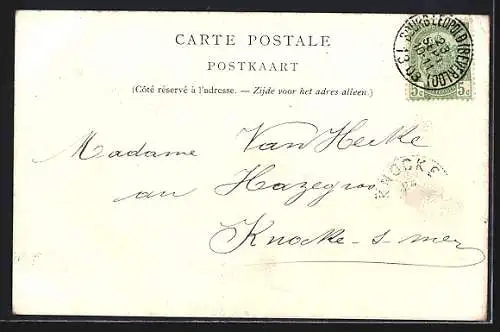 CARTE POSTALE
POSTKAART
(Côté réservé à l'adresse. — Zijde voor het adres alleen.)
BOURG-LEOPOLD (BEVERLOO)
5c 5c
Madame Van Hecke
au Hazegras
KNOCKE
Knocke-s-mer